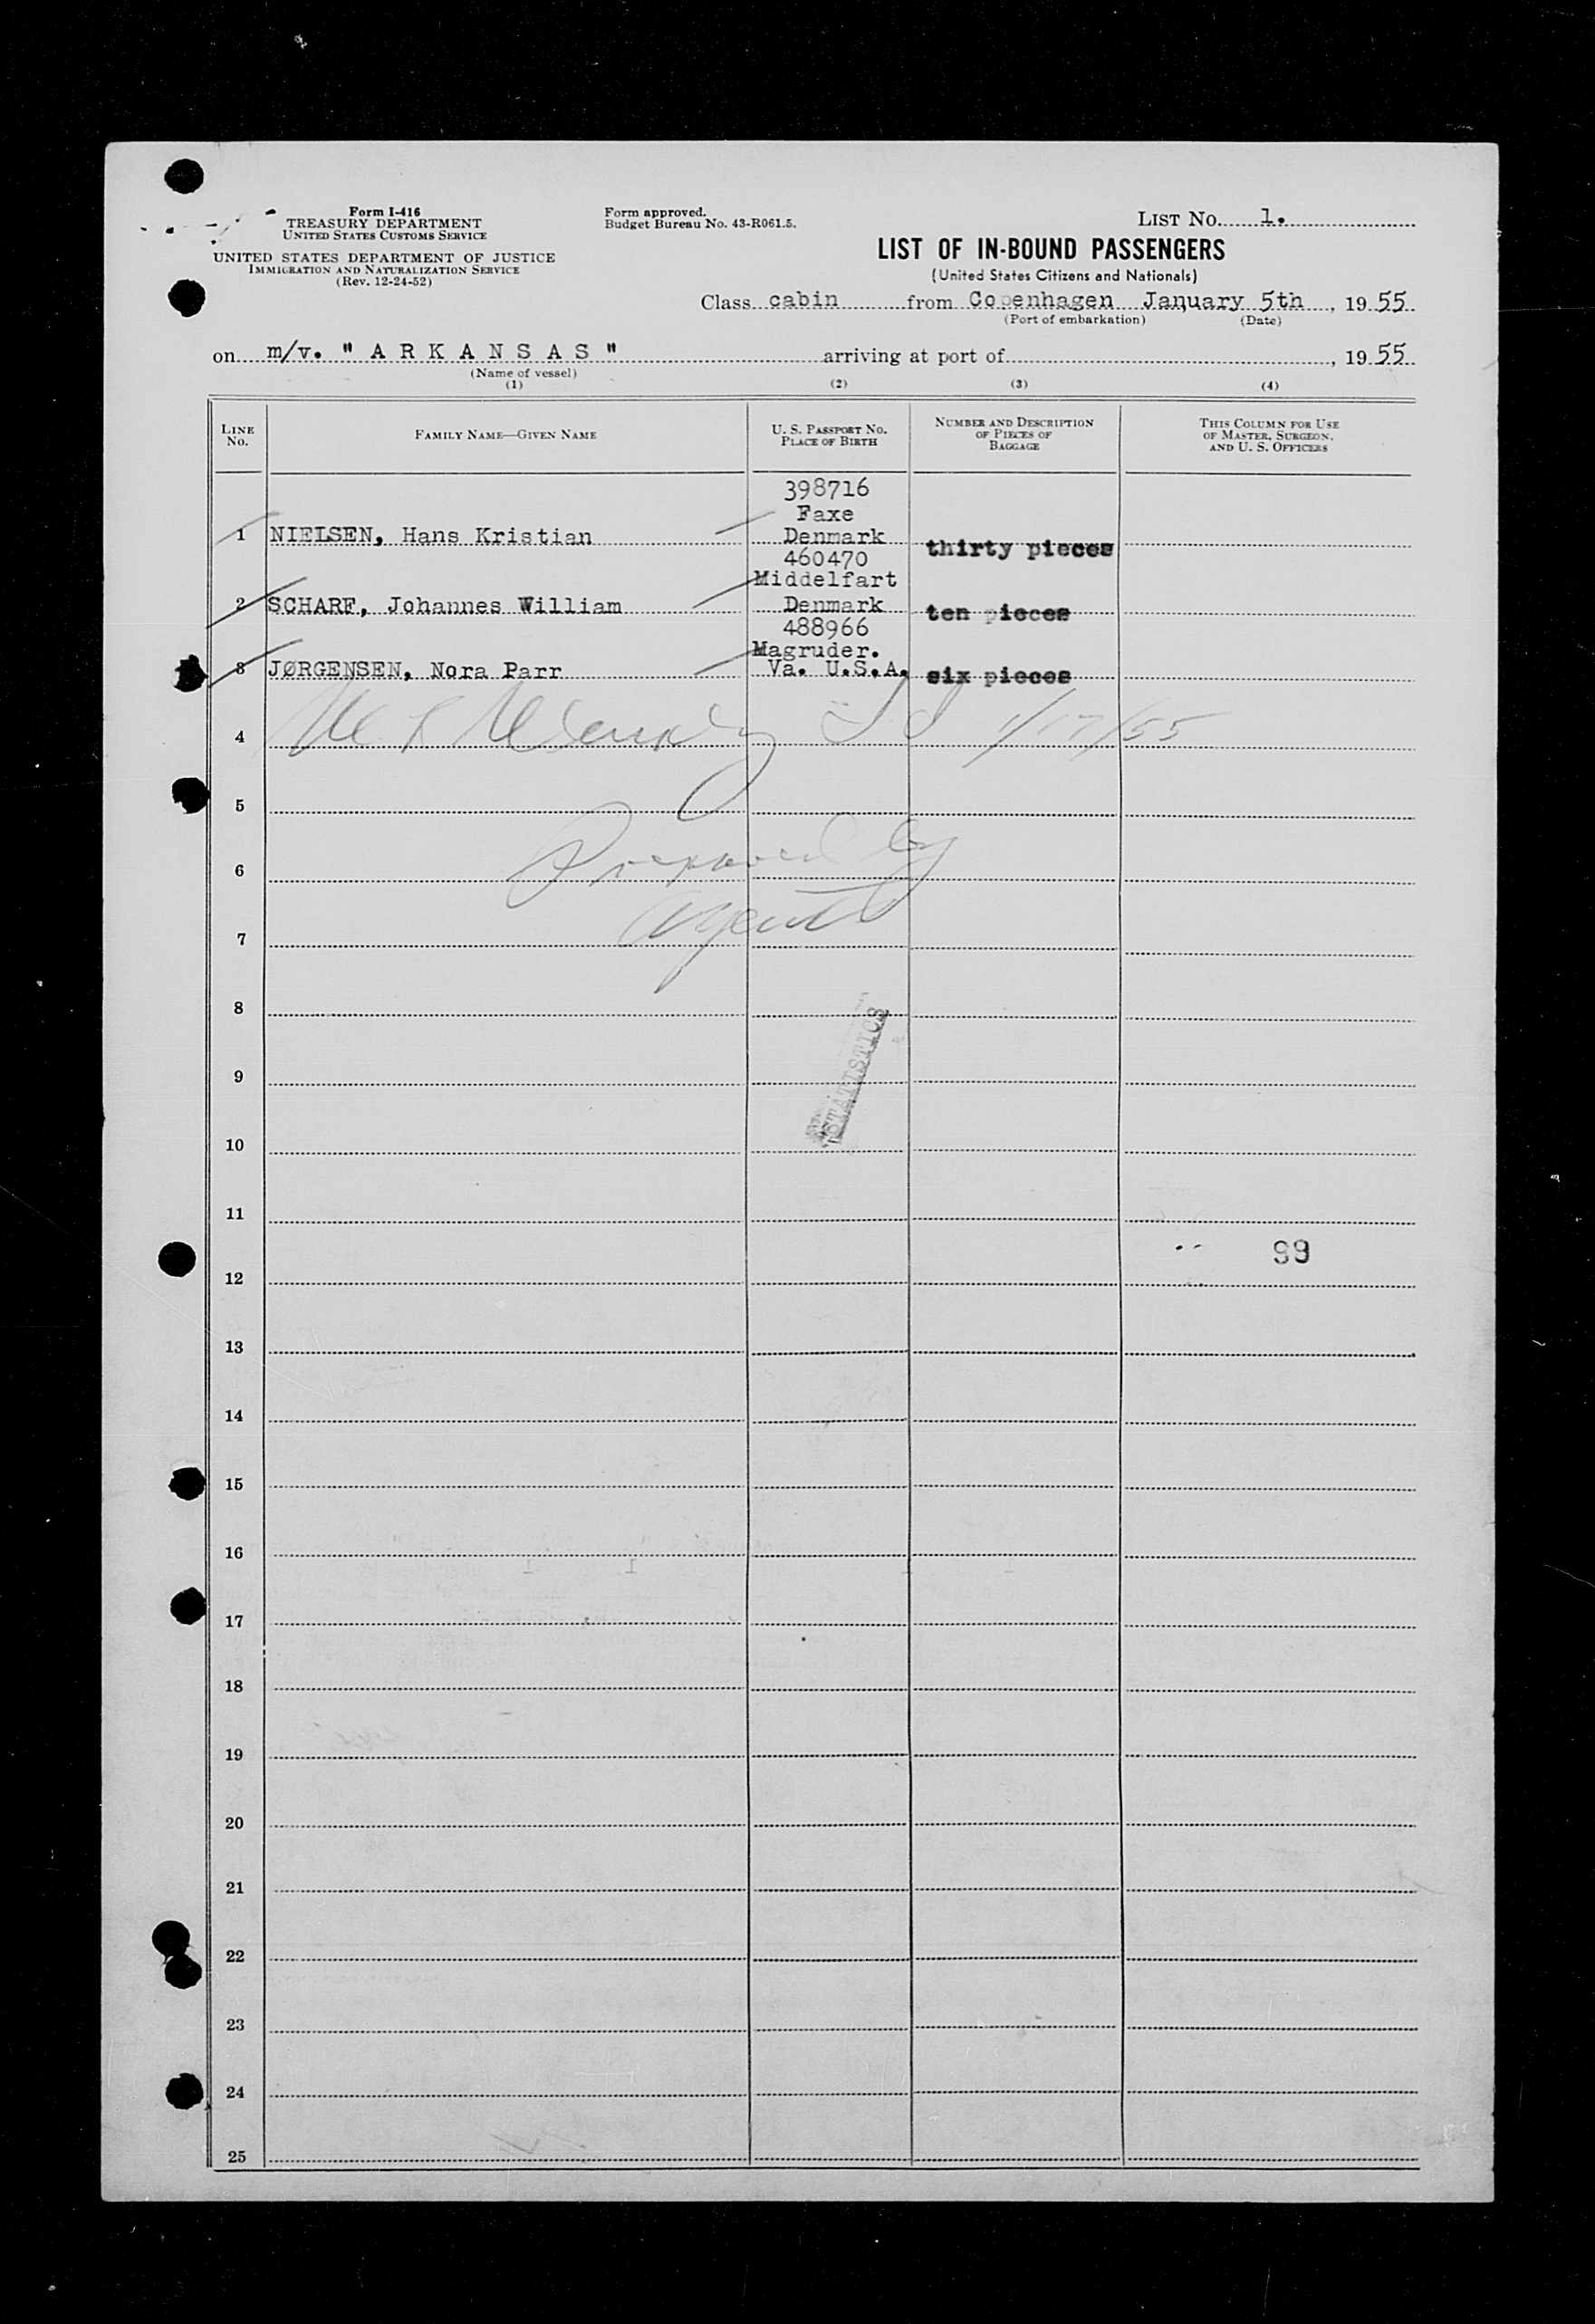 Form I-416
TREASURY DEPARTMENT
UNITED STATES CUSTOMS SERVICE
UNITED STATES DEPARTMENT OF JUSTICE
IMMIGRATION AND NATURALIZATION SERVICE
(Rev. 12-24-52)
Form approved.
Budget Bureau No. 43-R061.5.
LIST NO. 1.
LIST OF IN-BOUND PASSENGERS
(United States Citizens and Nationals)
Class cabin from Copenhagen January 5th, 1955
(Port of embarkation) (Date)
on m/v. " A R K A N S A S " arriving at port of , 1955
(Name of vessel)
(1) (2) (3) (4)
LINE No.
FAMILY NAME—GIVEN NAME
U. S. PASSPORT NO.
PLACE OF BIRTH
NUMBER AND DESCRIPTION
OF PIECES OF
BAGGAGE
THIS COLUMN FOR USE
OF MASTER, SURGEON,
AND U. S. OFFICERS
398716
Faxe
1 NIELSEN, Hans Kristian Denmark thirty pieces
460470
Middelfart
2 SCHARF, Johannes William Denmark ten pieces
488966
Magruder.
3 JØRGENSEN, Nora Parr Va. U.S.A. six pieces
4 1/17/55
5
6 Prepared by
7 agent
8
STATISTICS
9
10
11
99
12
13
14
15
16
17
18
19
20
21
22
23
24
25